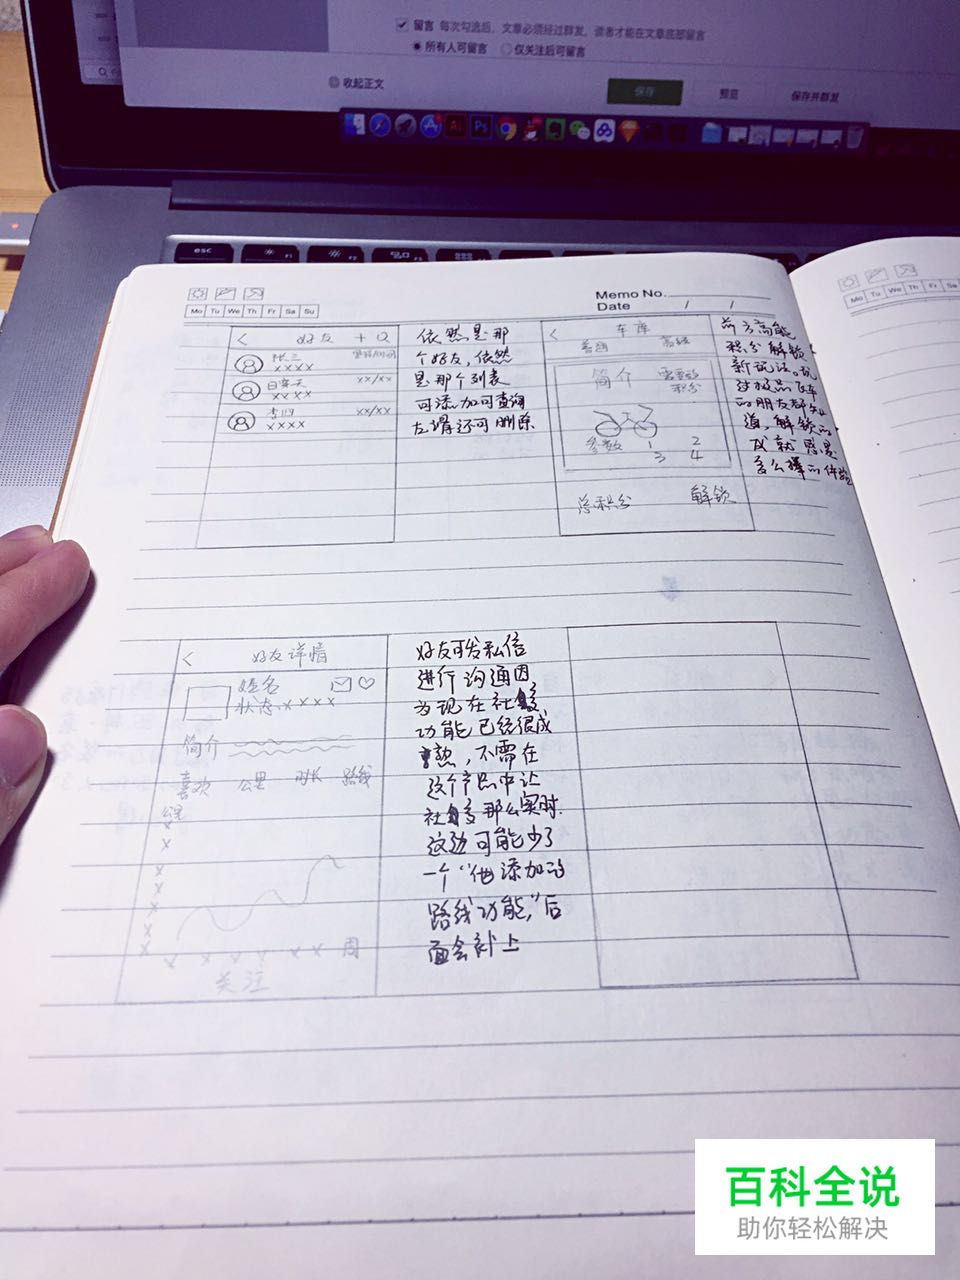 留言 每次勾选后，文章必须经过群发，读者才能在文章底部留言
所有人可留言 仅关注后可留言
收起正文
保存 预览 保存并群发
esc F1 F2 F3
Mo Tu We Th Fr Sa Su
Memo No.
Date / /
< 好友 + Q
张三
xxxx
白寒天 xx/xx
xxxx
李四 xx/xx
xxxx
依然是那
个好友，依然
是那个列表
可添加可查询
左滑还可删除
< 车库
普通 高级
简介 需要的
积分
参数 1 2
3 4
总积分 解锁
前方高能
积分解锁
新玩法。玩
过极品飞车
的朋友都知
道，解锁的
成就感是
多么棒的体验
< 好友详情
姓名
状态:xxxx
简介
喜欢 公里 时长 路线
公里
x
x
x
x
x
x x x x x x 周
关注
好友可发私信
进行沟通因
为现在社交
功能已经很成
熟，不需在
这个产品中让
社交那么实时.
这边可能少了
一个“他添加的
路线功能，”后
面会补上
Mo Tu We Th
百科全说
助你轻松解决